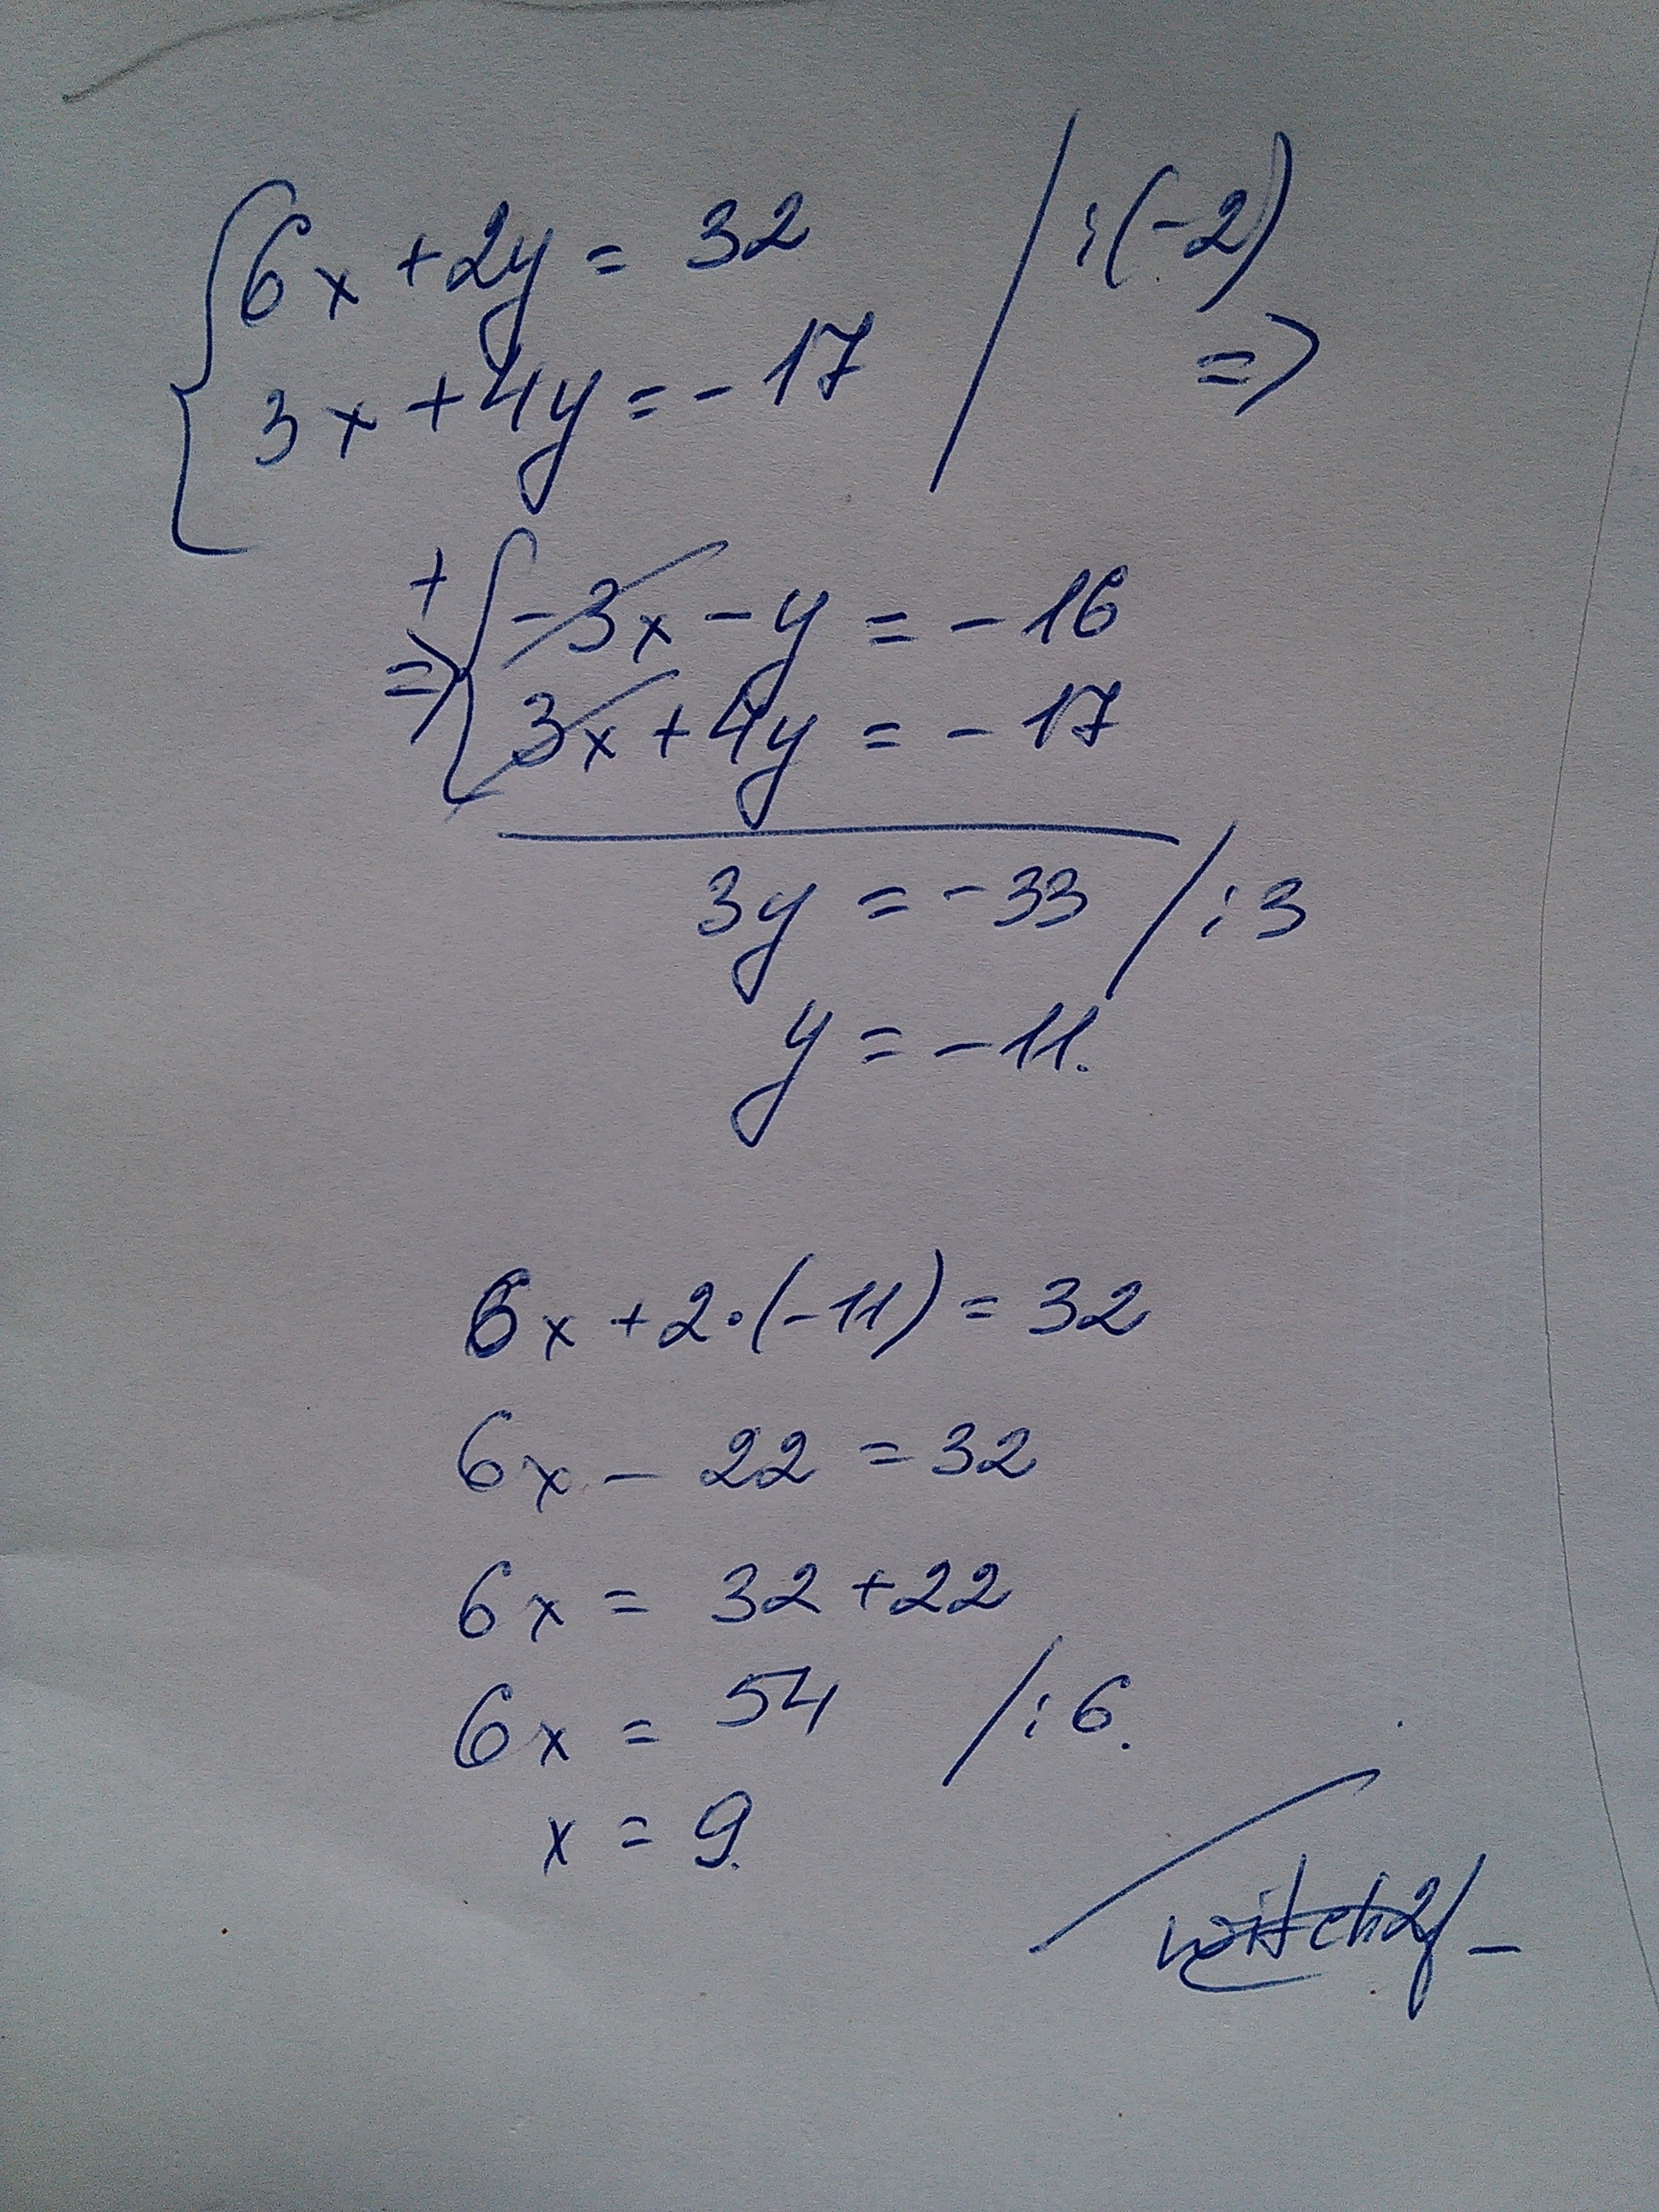 6x + 2y = 32 | : (-2)
3x + 4y = - 17 =>
+
=> -3x - y = - 16
3x + 4y = - 17
3y = - 33 / : 3
y = - 11.
6x + 2 · (-11) = 32
6x - 22 = 32
6x = 32 + 22
6x = 54 / : 6.
x = 9.